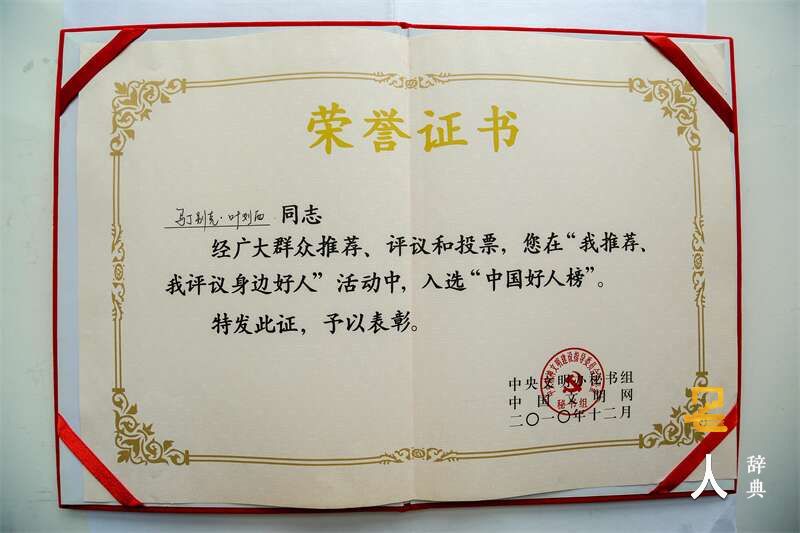 荣誉证书
马丁别克·叶列西 同志
经广大群众推荐、评议和投票，您在“我推荐、
我评议身边好人”活动中，入选“中国好人榜”。
特发此证，予以表彰。
中央文明办秘书组
中国文明网
二〇一〇年十二月
秘书组
人
辞典